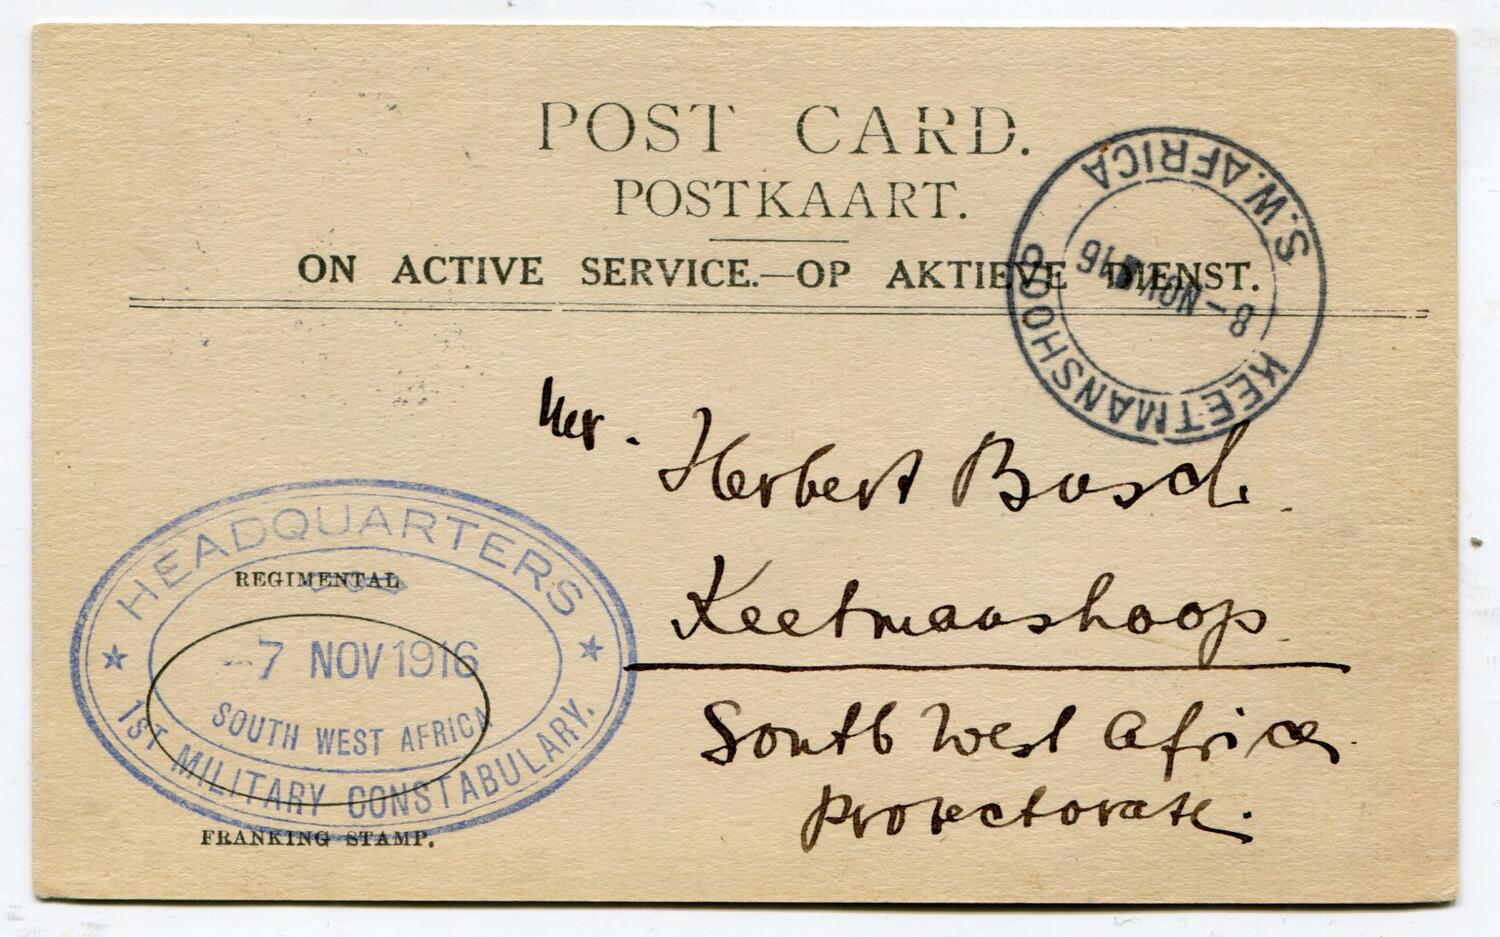 POST CARD.
POSTKAART.
ON ACTIVE SERVICE.—OP AKTIEVE DIENST.
KEETMANSHOOP
S.W. AFRICA
8 - NOV 16
Mr. Herbert Busch.
Keetmanshoop
South West Africa
Protectorate.
HEADQUARTERS
REGIMENTAL
-7 NOV 1916
SOUTH WEST AFRICA
1ST MILITARY CONSTABULARY.
FRANKING STAMP.